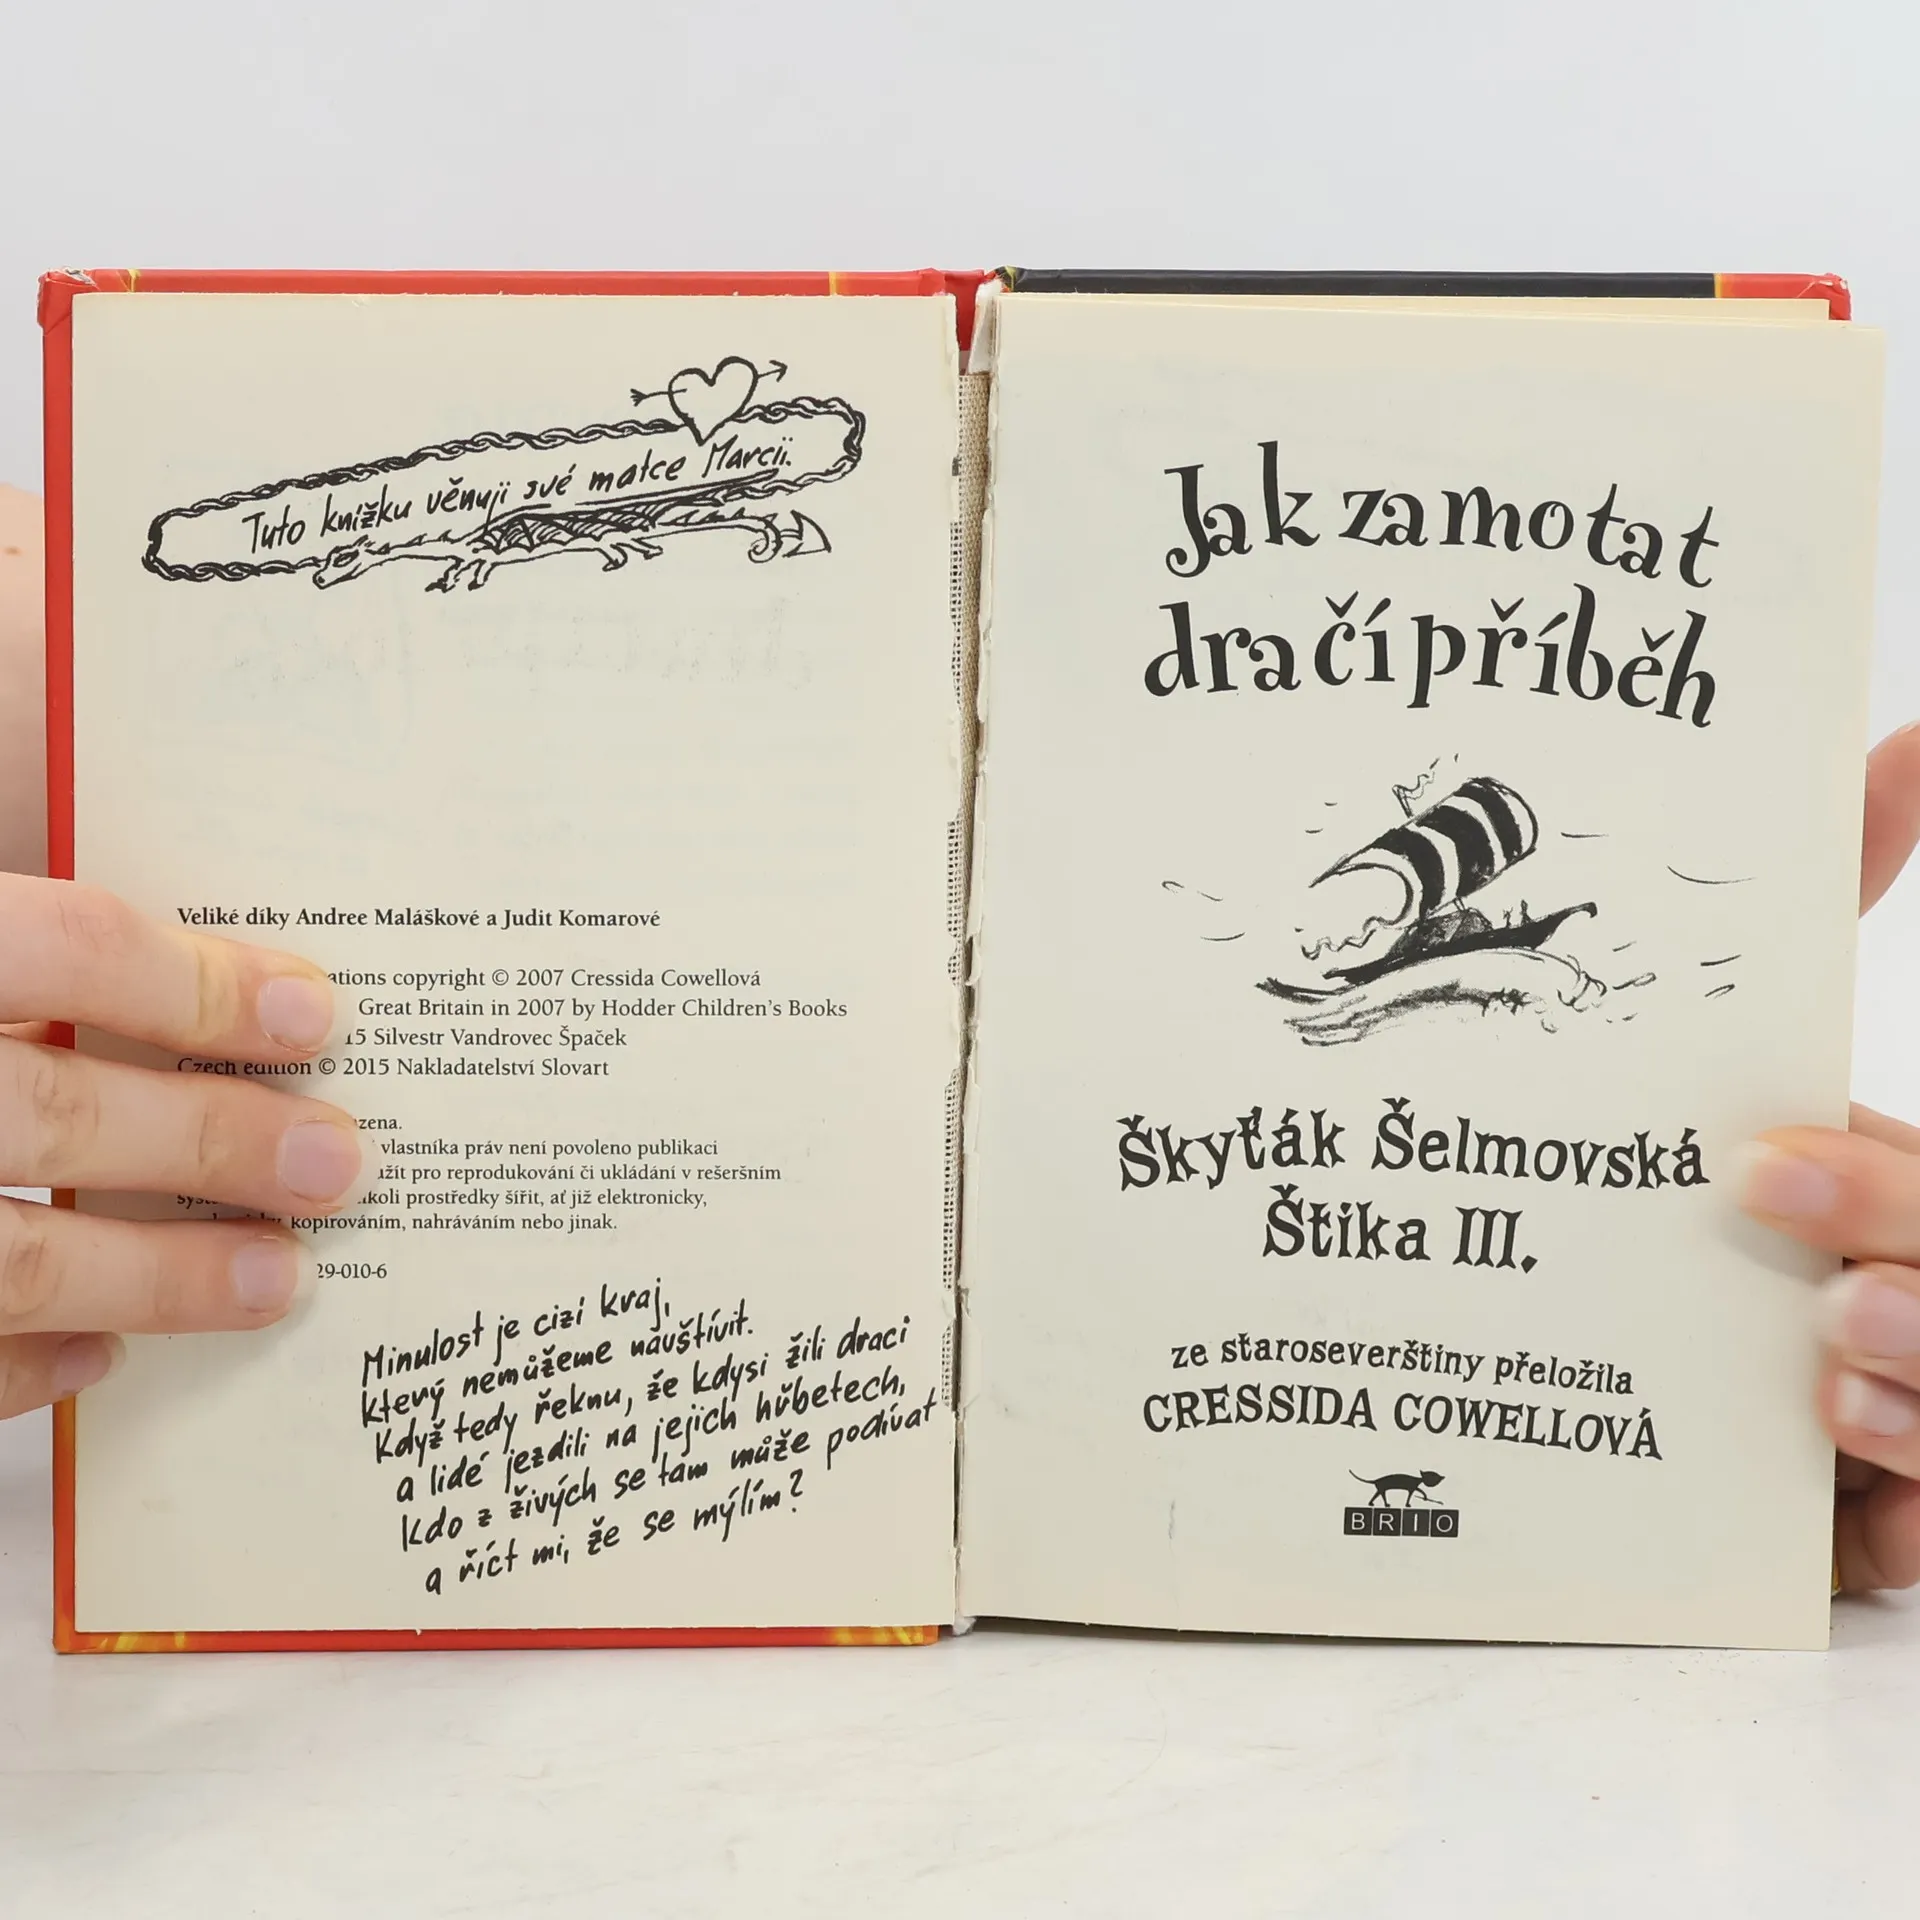 Tuto knížku věnuji své matce Marcii.
Veliké díky Andree Maláškové a Judit Komarové
copyright © 2007 Cressida Cowellová
Great Britain in 2007 by Hodder Children's Books
Silvestr Vandrovec Špaček
Czech edition © 2015 Nakladatelství Slovart
vlastníka práv není povoleno publikaci
pro reprodukování či ukládání v rešeršním
prostředky šířit, ať již elektronicky,
kopírováním, nahráváním nebo jinak.
29-010-6
Minulost je cizí kraj,
který nemůžeme navštívit.
Když tedy řeknu, že kdysi žili draci
a lidé jezdili na jejich hřbetech,
Kdo z živých se tam může podívat
a říct mi, že se mýlím?
Jak zamotat
dračí příběh
Škyťák Šelmovská
Štika III.
ze staroseverštiny přeložila
CRESSIDA COWELLOVÁ
BRIO